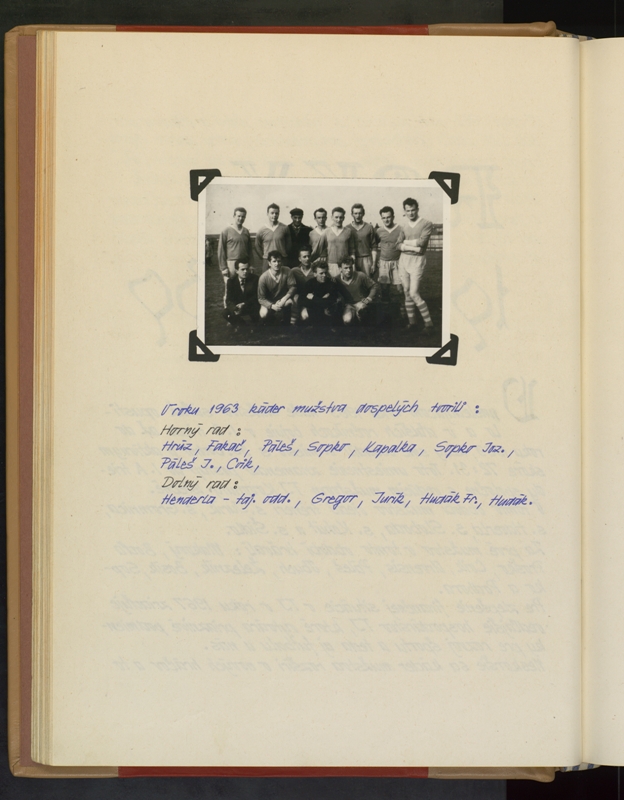 V roku 1963 káder mužstva dospelých tvorili :
Horný rad :
Hráz, Fakač, Páleš, Sopko, Kapalka, Sopko Joz.,
Páleš J., Crík,
Dolný rad :
Henderla - taj. odd., Gregor, Jurík, Hudák Fr., Hudák.